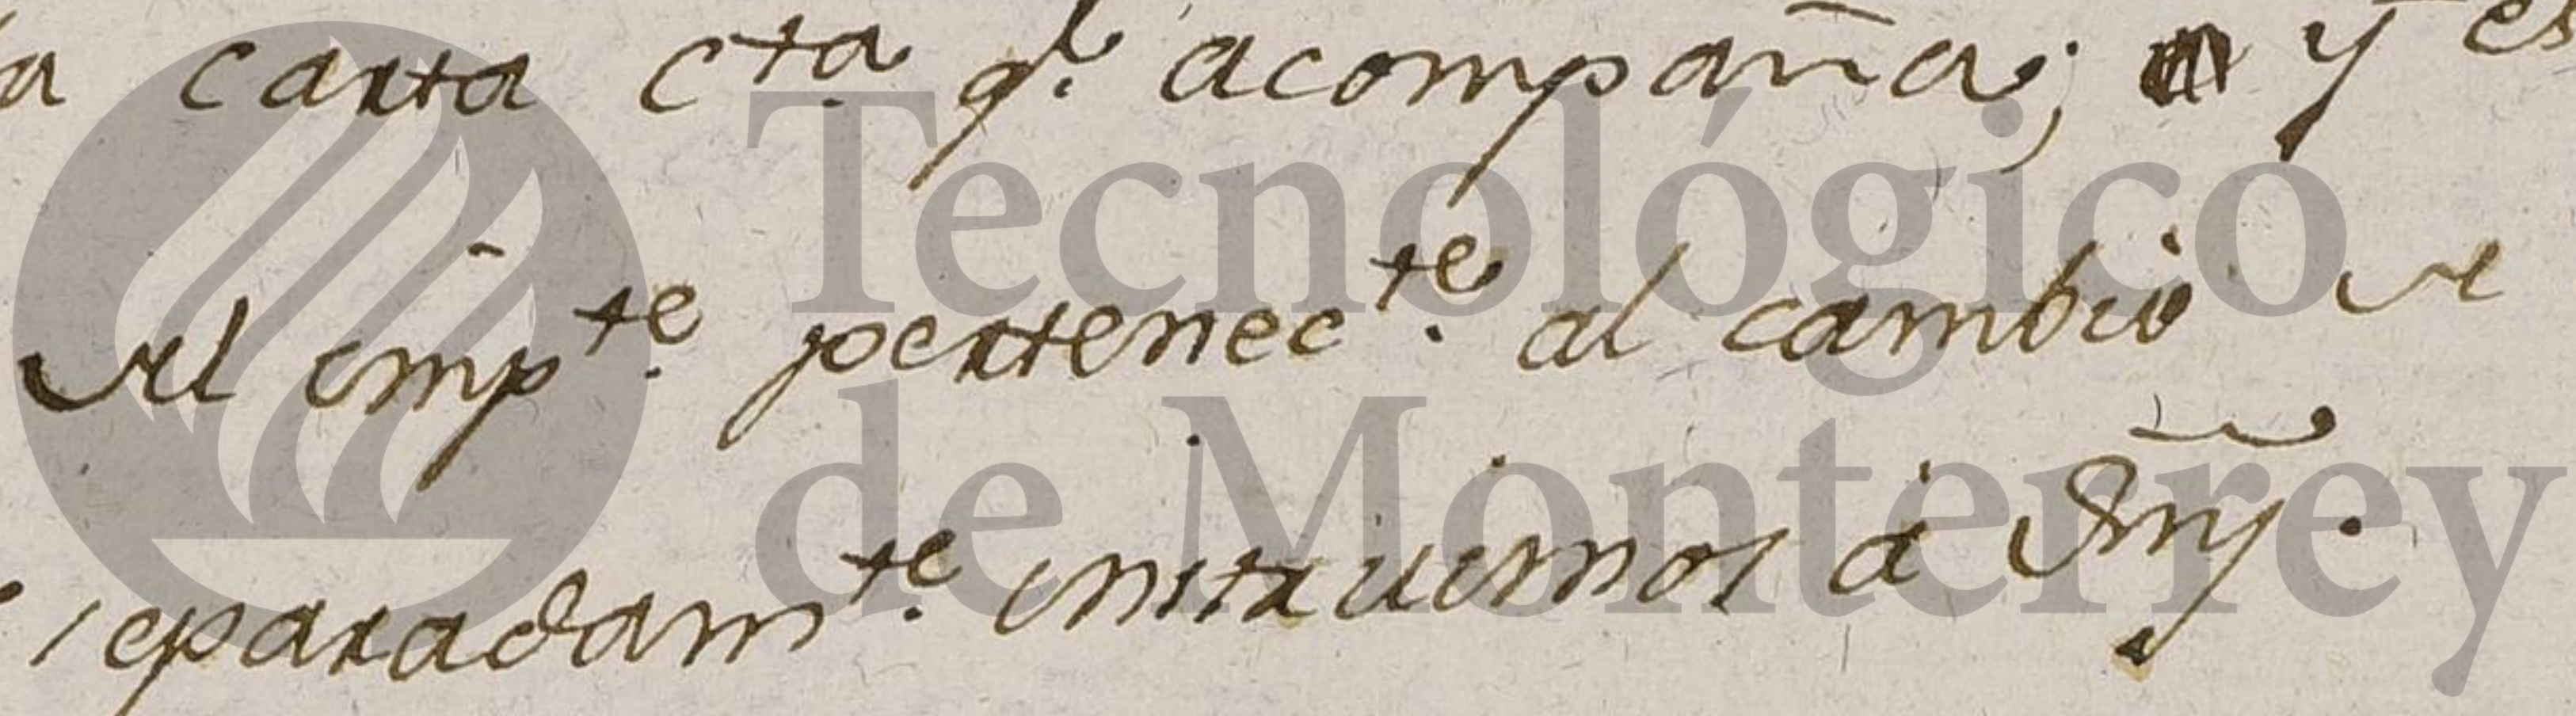 a carta cta. qe. acompaña; y es
del impte. pertenecte. al cambio de
separadamte. instruimos á Vm.
Tecnológico
de Monterrey